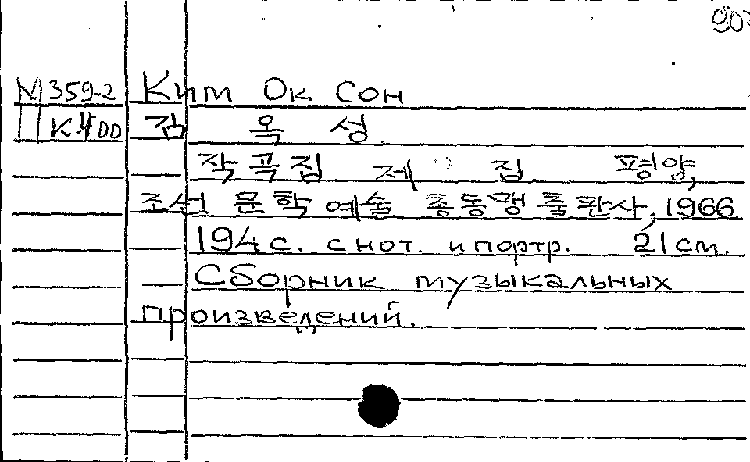 90
М 359-2 Ким Ок Сон
П КЧ00 김 옥 성
작곡집 제 집 평양,
조선 문학 예술 총동맹 출판사, 1966
194 с. с нот. и портр. 21 см.
Сборник музыкальных
произведений.